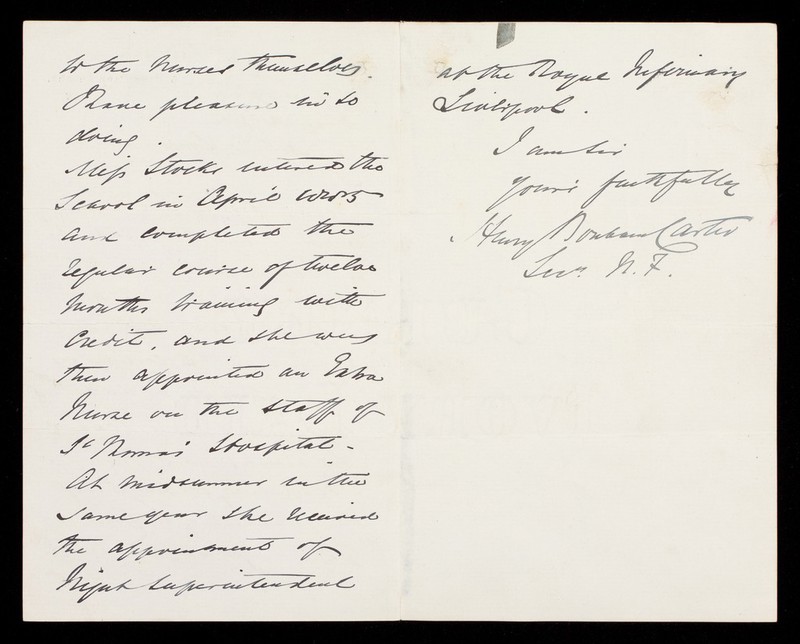 to the Nurses themselves.
I have pleasure in so
doing.
Miss Stocks entered the
School in April 1885
and completed the
regular course of twelve
months training with
credit, and she was
then appointed an Extra
Nurse on the staff of
St Thomas' Hospital -
At midsummer in the
same year she received
the appointment of
Night Superintendent
at the Royal Infirmary
Liverpool.
I am Sir
yours faithfully
Henry Bonham Carter
Secy N. F.